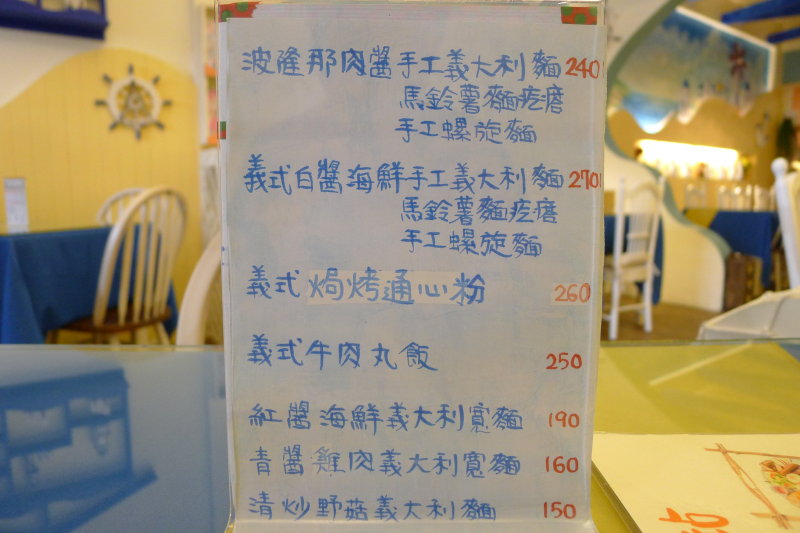 波隆那肉醬手工義大利麵240
馬鈴薯麵疙瘩
手工螺旋麵
義式白醬海鮮手工義大利麵270
馬鈴薯麵疙瘩
手工螺旋麵
義式焗烤通心粉 260
義式牛肉丸飯 250
紅醬海鮮義大利寬麵 190
青醬雞肉義大利寬麵 160
清炒野菇義大利麵 150